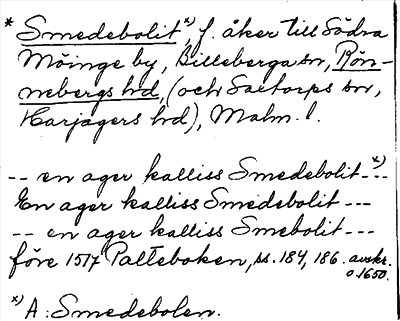 * Smedebolit *), f. åker till Södra
Möinge by, Billeberga sn, Rön-
nebergs hd, (och Saxtorps sn,
Harjagers hd), Malm. l.
-- en ager kalliss Smedebolit -- *)
En ager kalliss Smedebolit ---
-- en ager kalliss Smebolit ---
före 1517 Palteboken, ss. 184, 186. avskr.
o. 1650.
*) A: Smedebolen.